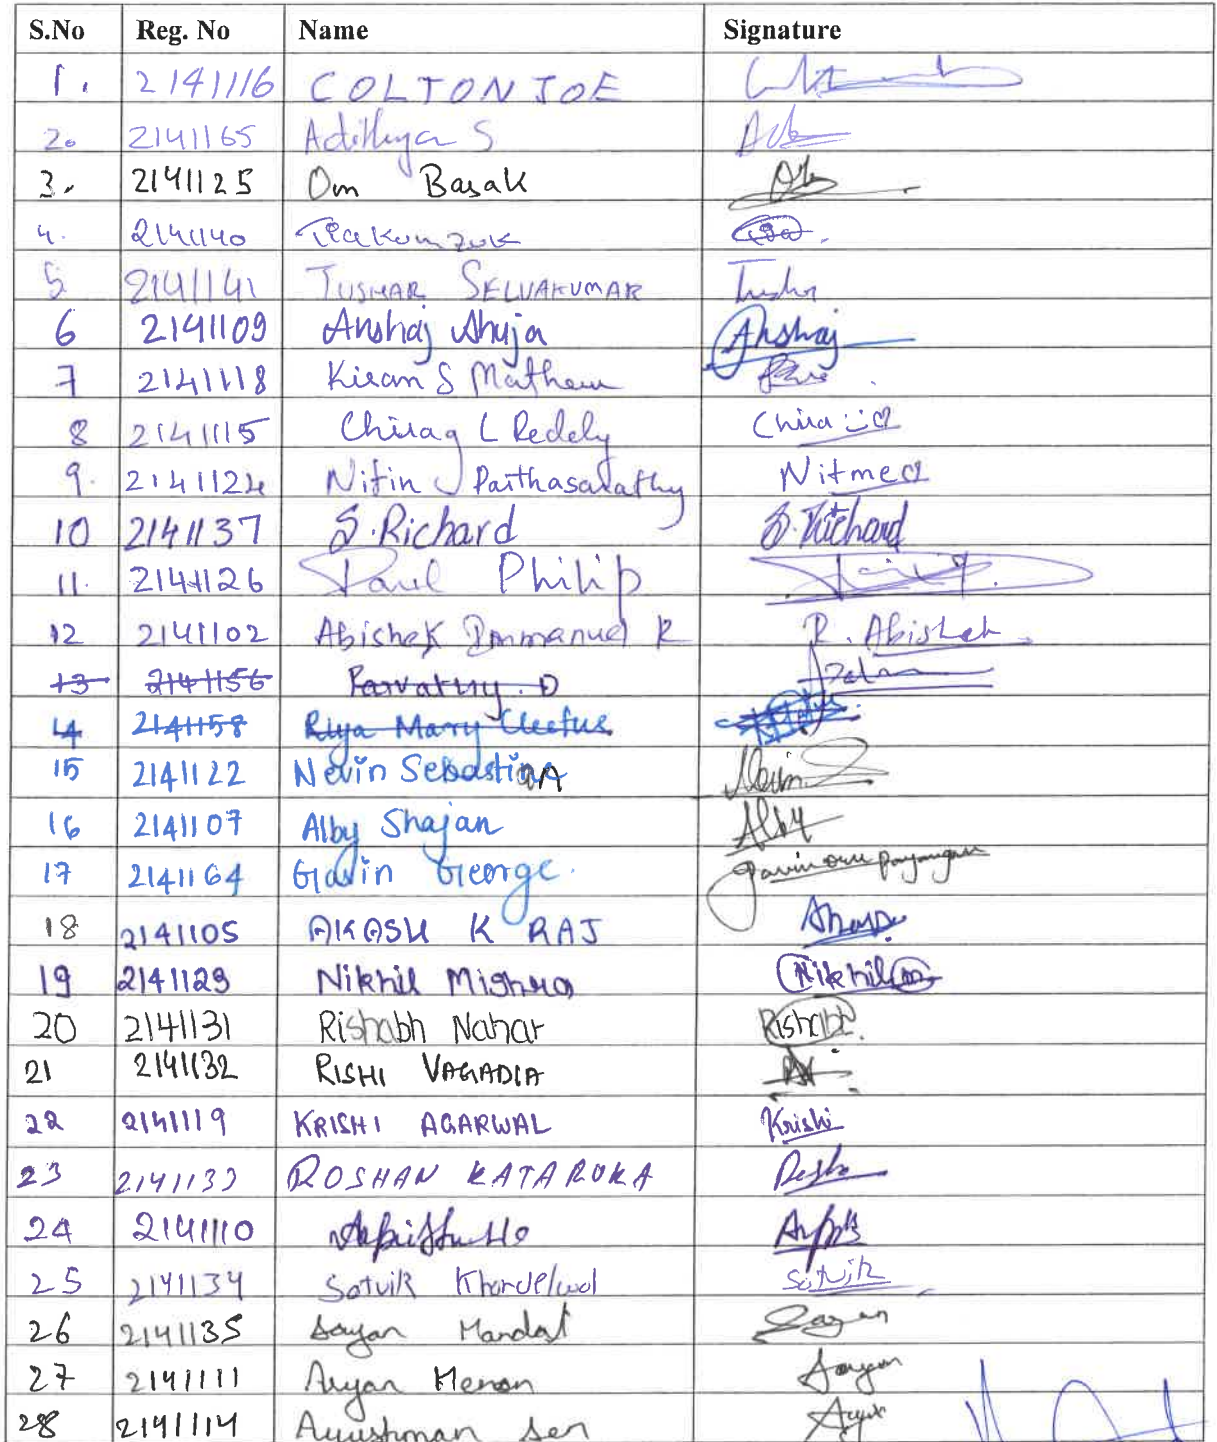 S.No Reg. No Name Signature
1. 2141116 COLTON JOE
2. 2141165 Adithya S
3. 2141125 Om Basak
4. 2141140 Tiakumzuk
5 2141141 TUSHAR SELVAKUMAR Tushar
6 2141109 Anshaj Ahuja Anshaj
7 2141118 Kiran S Mathew
8 2141115 Chirag L Reddy
9. 2141124 Nitin Parthasarathy
10 2141137 S.Richard S.Richard
11. 2141126 Paul Philip
12 2141102 Abishek Immanuel R R. Abishek
13 2141156 Parvathy. D
14 2141158 Riya Mary Cleetus
15 2141122 Nevin Sebastian A Nevin
16 2141107 Alby Shajan Alby
17 2141164 Gavin George.
18 2141105 AKASH K RAJ
19 2141123 Nikhil Mishra Nikhil m
20 2141131 Rishabh Nahar Rishabh
21 2141132 RISHI VAGADIA
22 2141119 KRISHI AGARWAL Krishi
23 2141133 ROSHAN KATARUKA
24 2141110
25 2141134 Satvik Khandelwal Satvik
26 2141135 Sayan Mandal Sayan
27 2141111 Aryan Menon Aryan
28 2141114 Ayushman Sen